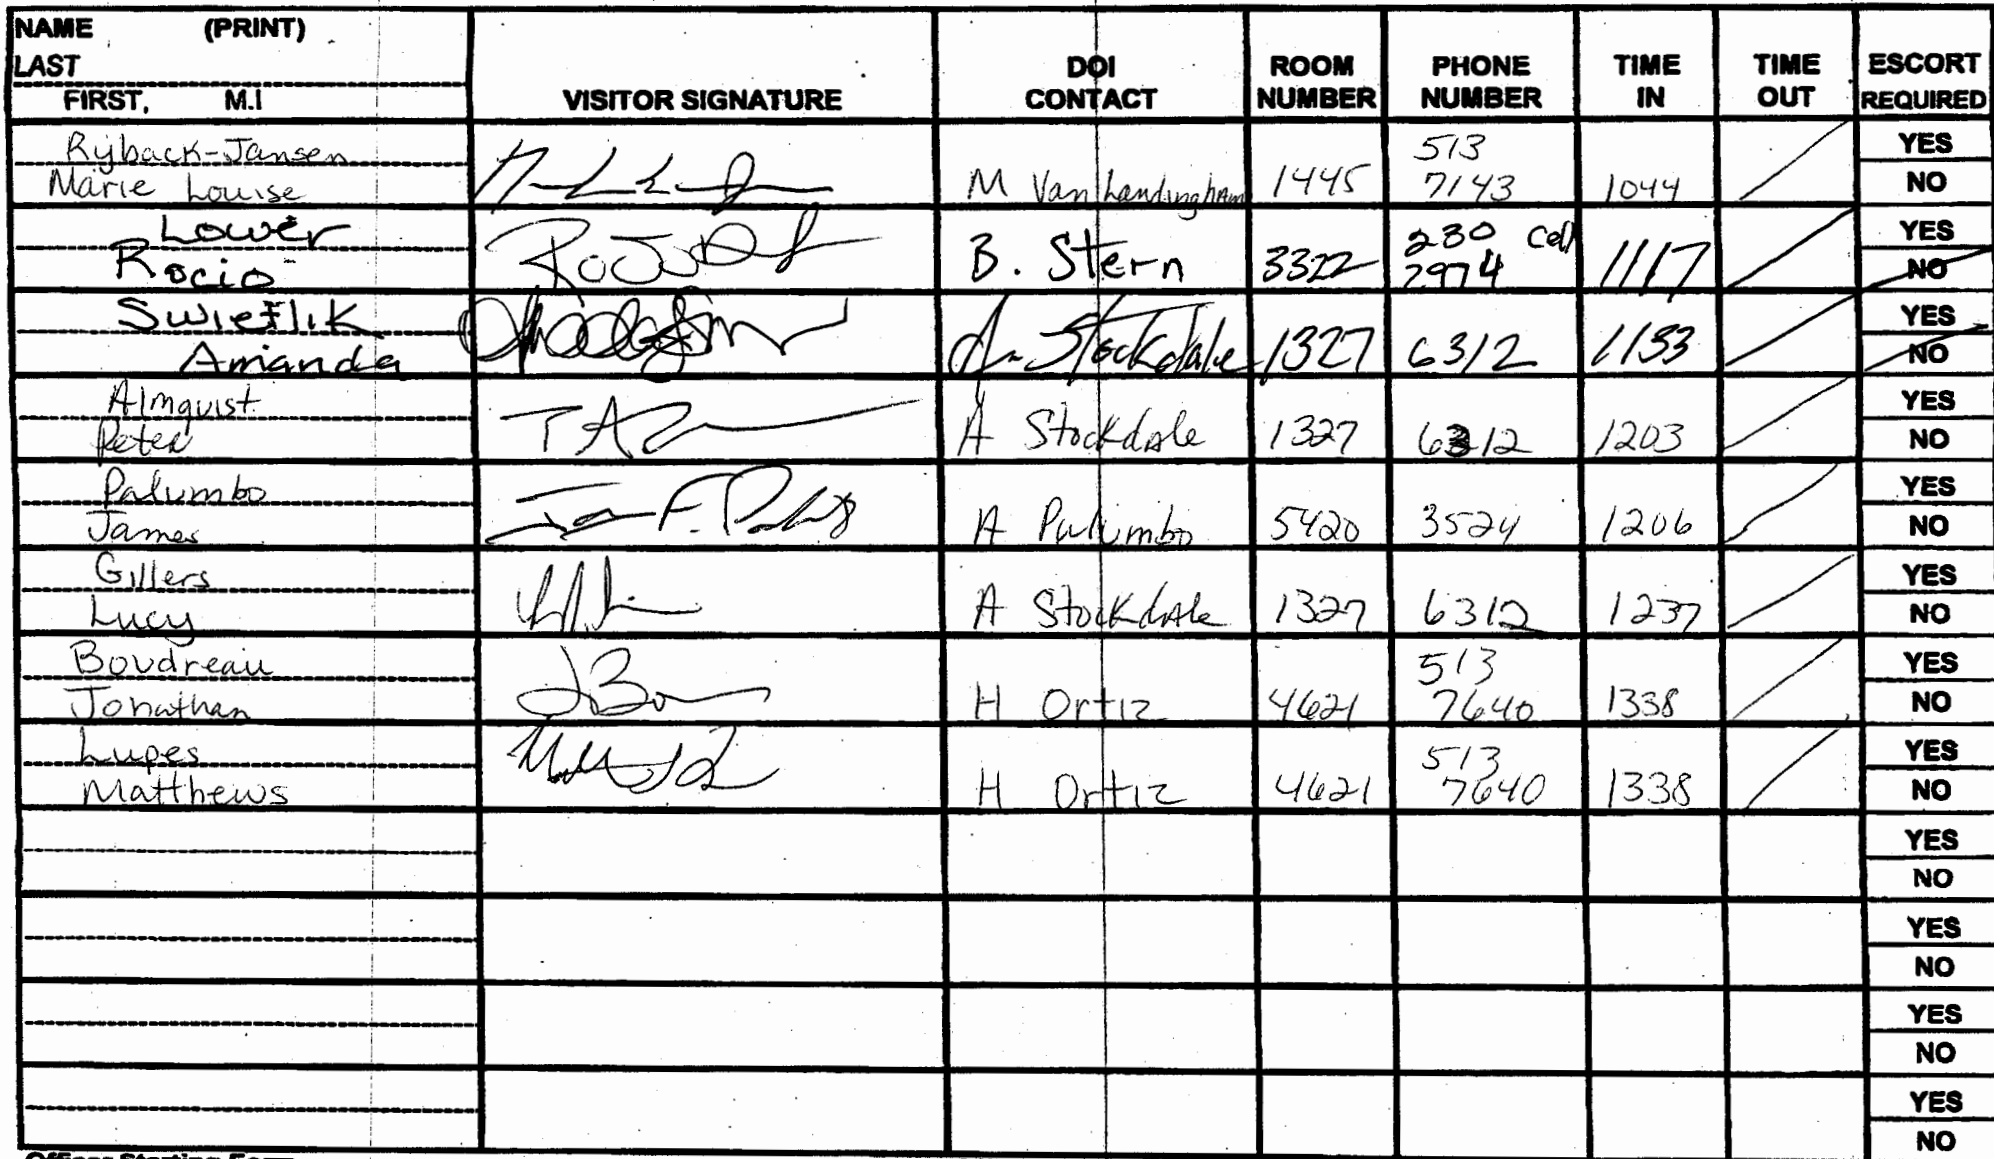 NAME (PRINT)
LAST
FIRST, M.I
VISITOR SIGNATURE
DOI CONTACT
ROOM NUMBER
PHONE NUMBER
TIME IN
TIME OUT
ESCORT REQUIRED
Ryback-Jansen
Marie Louise
M VanLandingham 1445 513 7143 1044
YES
NO
Lower
Rocio
B. Stern 3322 230 Cell 2974 1117
YES
NO
Amanda
A Stockdale 1327 6312 1133
YES
NO
Almquist
Peter
A Stockdale 1327 6312 1203
YES
NO
Palumbo
James
A Palumbo 5420 3524 1206
YES
NO
Gillers
Lucy
A Stockdale 1327 6312 1237
YES
NO
Boudreau
Jonathan
H Ortiz 4621 513 7640 1338
YES
NO
Lupes
Matthews
H Ortiz 4621 513 7640 1338
YES
NO
YES
NO
YES
NO
YES
NO
YES
NO